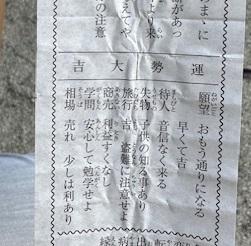 まいに
があっ
より来
えてや
の注意
運勢大吉
願望 おもう通りになる
早くて吉
待人 音信なく来る
失物 子供の知る事あり
旅行 吉 盗難に注意せよ
商売 利益すくなし
学問 安心して勉学せよ
相場 売れ 少しは利あり